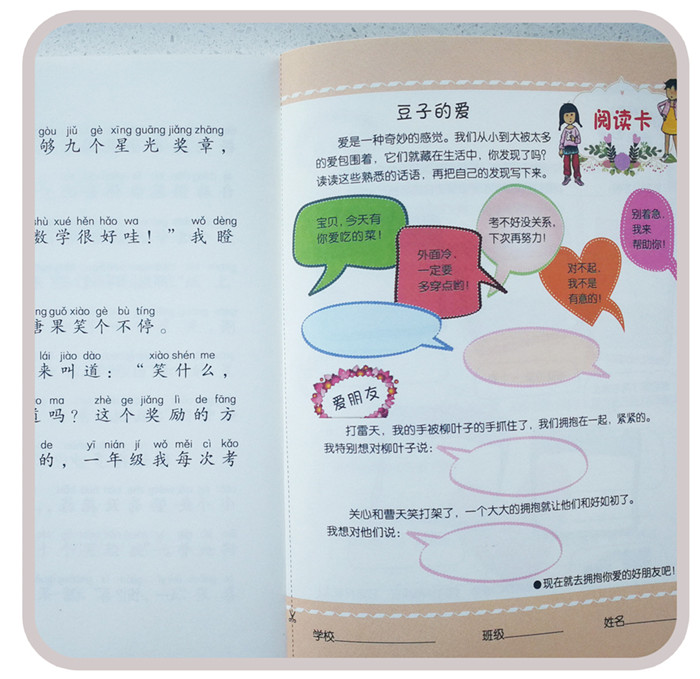 gòu jiǔ gè xīng guāng jiǎng zhāng
够九个星光奖章，
shù xué hěn hǎo wa wǒ dèng
数学很好哇！”我瞪
guǒ xiào gè bù tíng
果笑个不停。
lái jiào dào xiào shén me
来叫道：“笑什么，
ma zhè ge jiǎng lì de fāng
吗？这个奖励的方
de yī nián jí wǒ měi cì kǎo
的，一年级我每次考
豆子的爱
阅读卡
爱是一种奇妙的感觉。我们从小到大被太多
的爱包围着，它们就藏在生活中，你发现了吗？
读读这些熟悉的话语，再把自己的发现写下来。
宝贝，今天有
你爱吃的菜！
外面冷，
一定要
多穿点哟！
考不好没关系，
下次再努力！
对不起，
我不是
有意的！
别着急，
我来
帮助你！
爱朋友
打雷天，我的手被柳叶子的手抓住了，我们拥抱在一起，紧紧的。
我特别想对柳叶子说：
关心和曹天笑打架了，一个大大的拥抱就让他们和好如初了。
我想对他们说：
●现在就去拥抱你爱的好朋友吧！
学校 班级 姓名